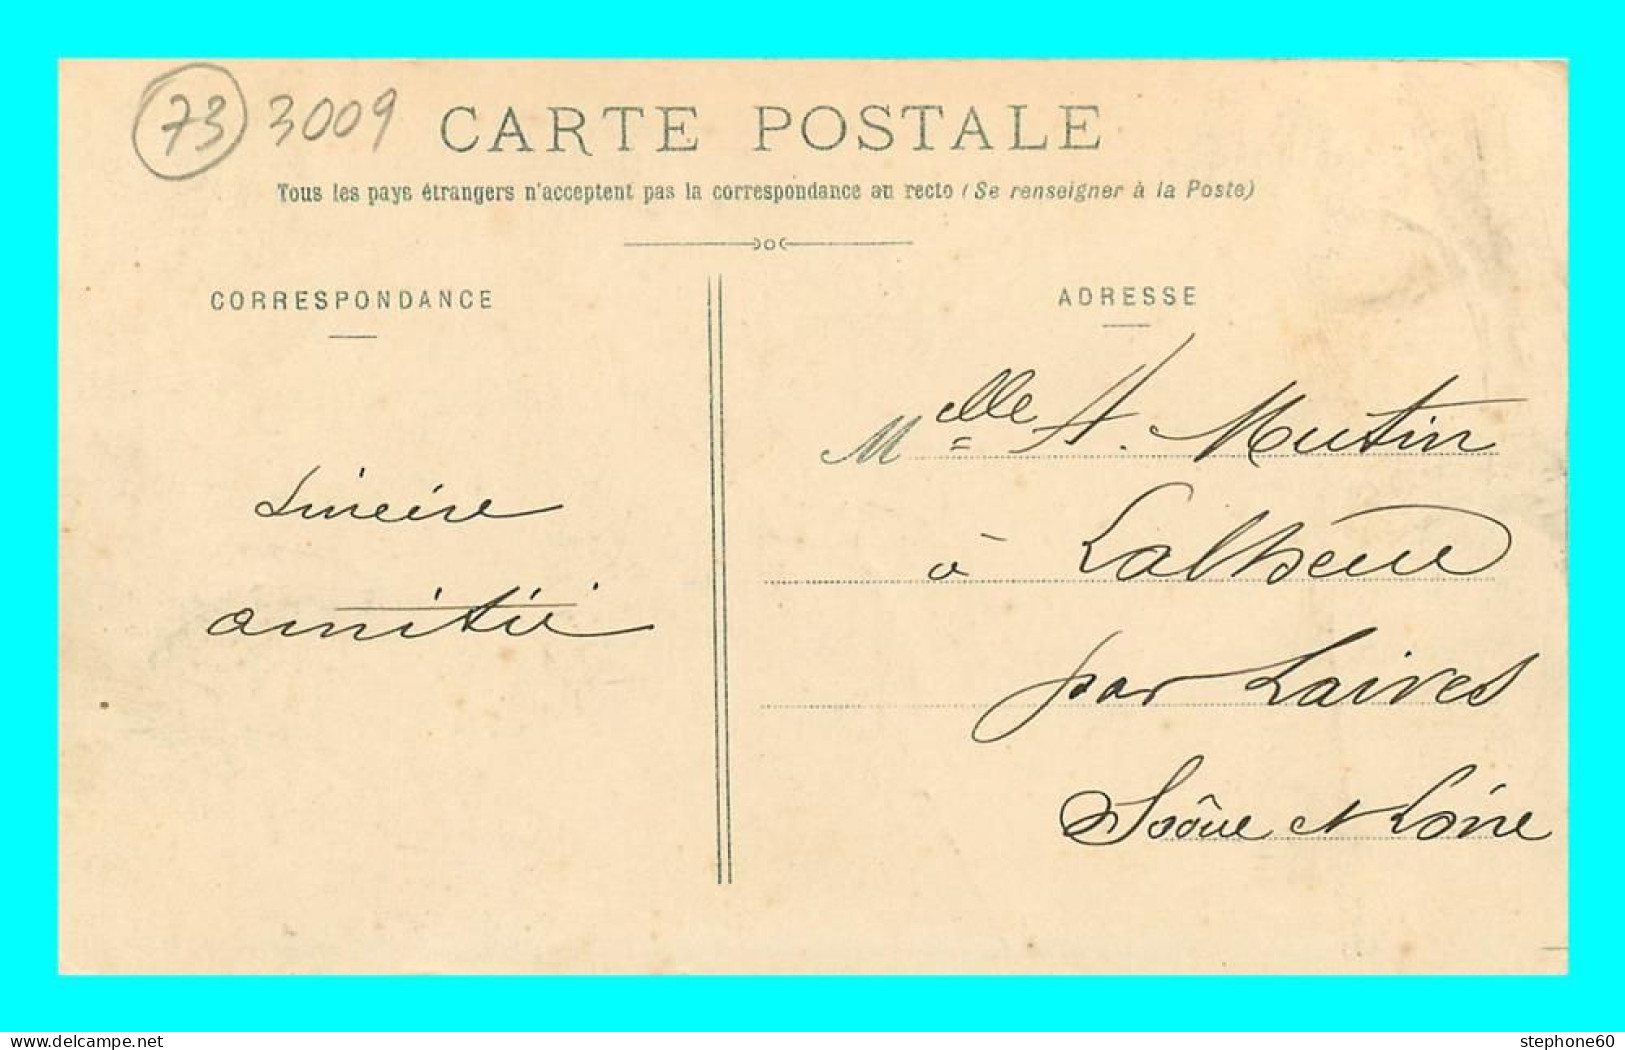 73 3009
CARTE POSTALE
Tous les pays étrangers n'acceptent pas la correspondance au recto (Se renseigner à la Poste)
CORRESPONDANCE
ADRESSE
Sincère
amitié
Melle A. Mutin
à Lalheue
par Laives
Saône et Loire
www.delcampe.net
stephone60